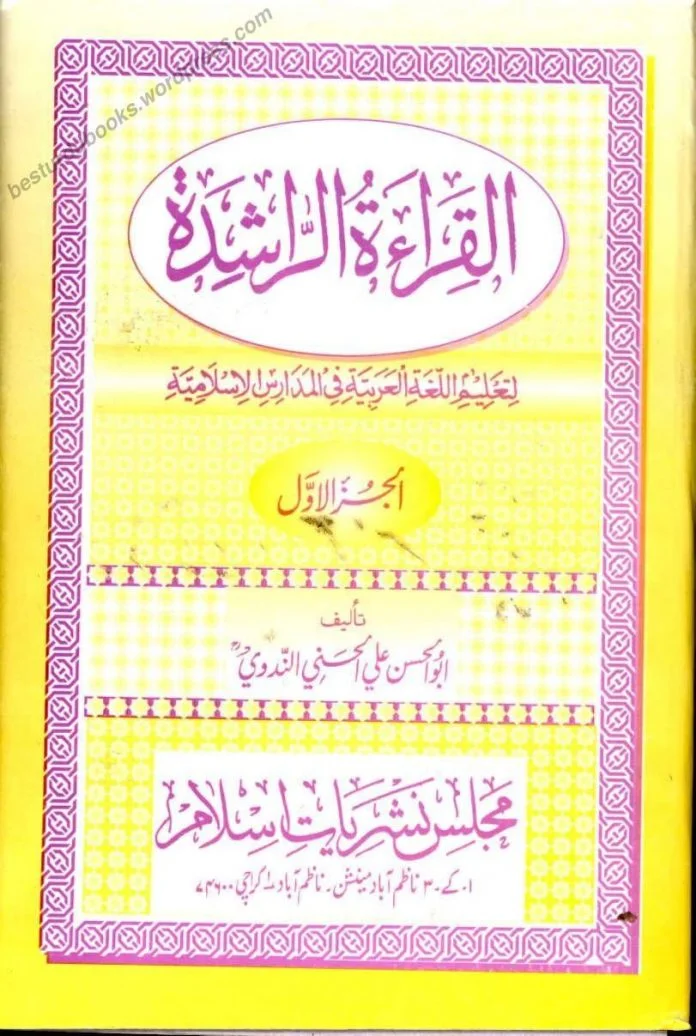 besturdubooks.wordpress.com
القِرَاءَةُ الرَّاشِدَة
لِتَعْلِيْمِ اللُّغَةِ الْعَرَبِيَّةِ فِي الْمَدَارِسِ الْإِسْلَامِيَّةِ
الْجُزْءُ الْاَوَّل
تأليف
ابو الحسن علي الحسني الندوي
مجلس نشریاتِ اسلام
۱۔کے۔۳ ناظم آباد مینشن۔ ناظم آباد ۱ کراچی ۷۴۶۰۰